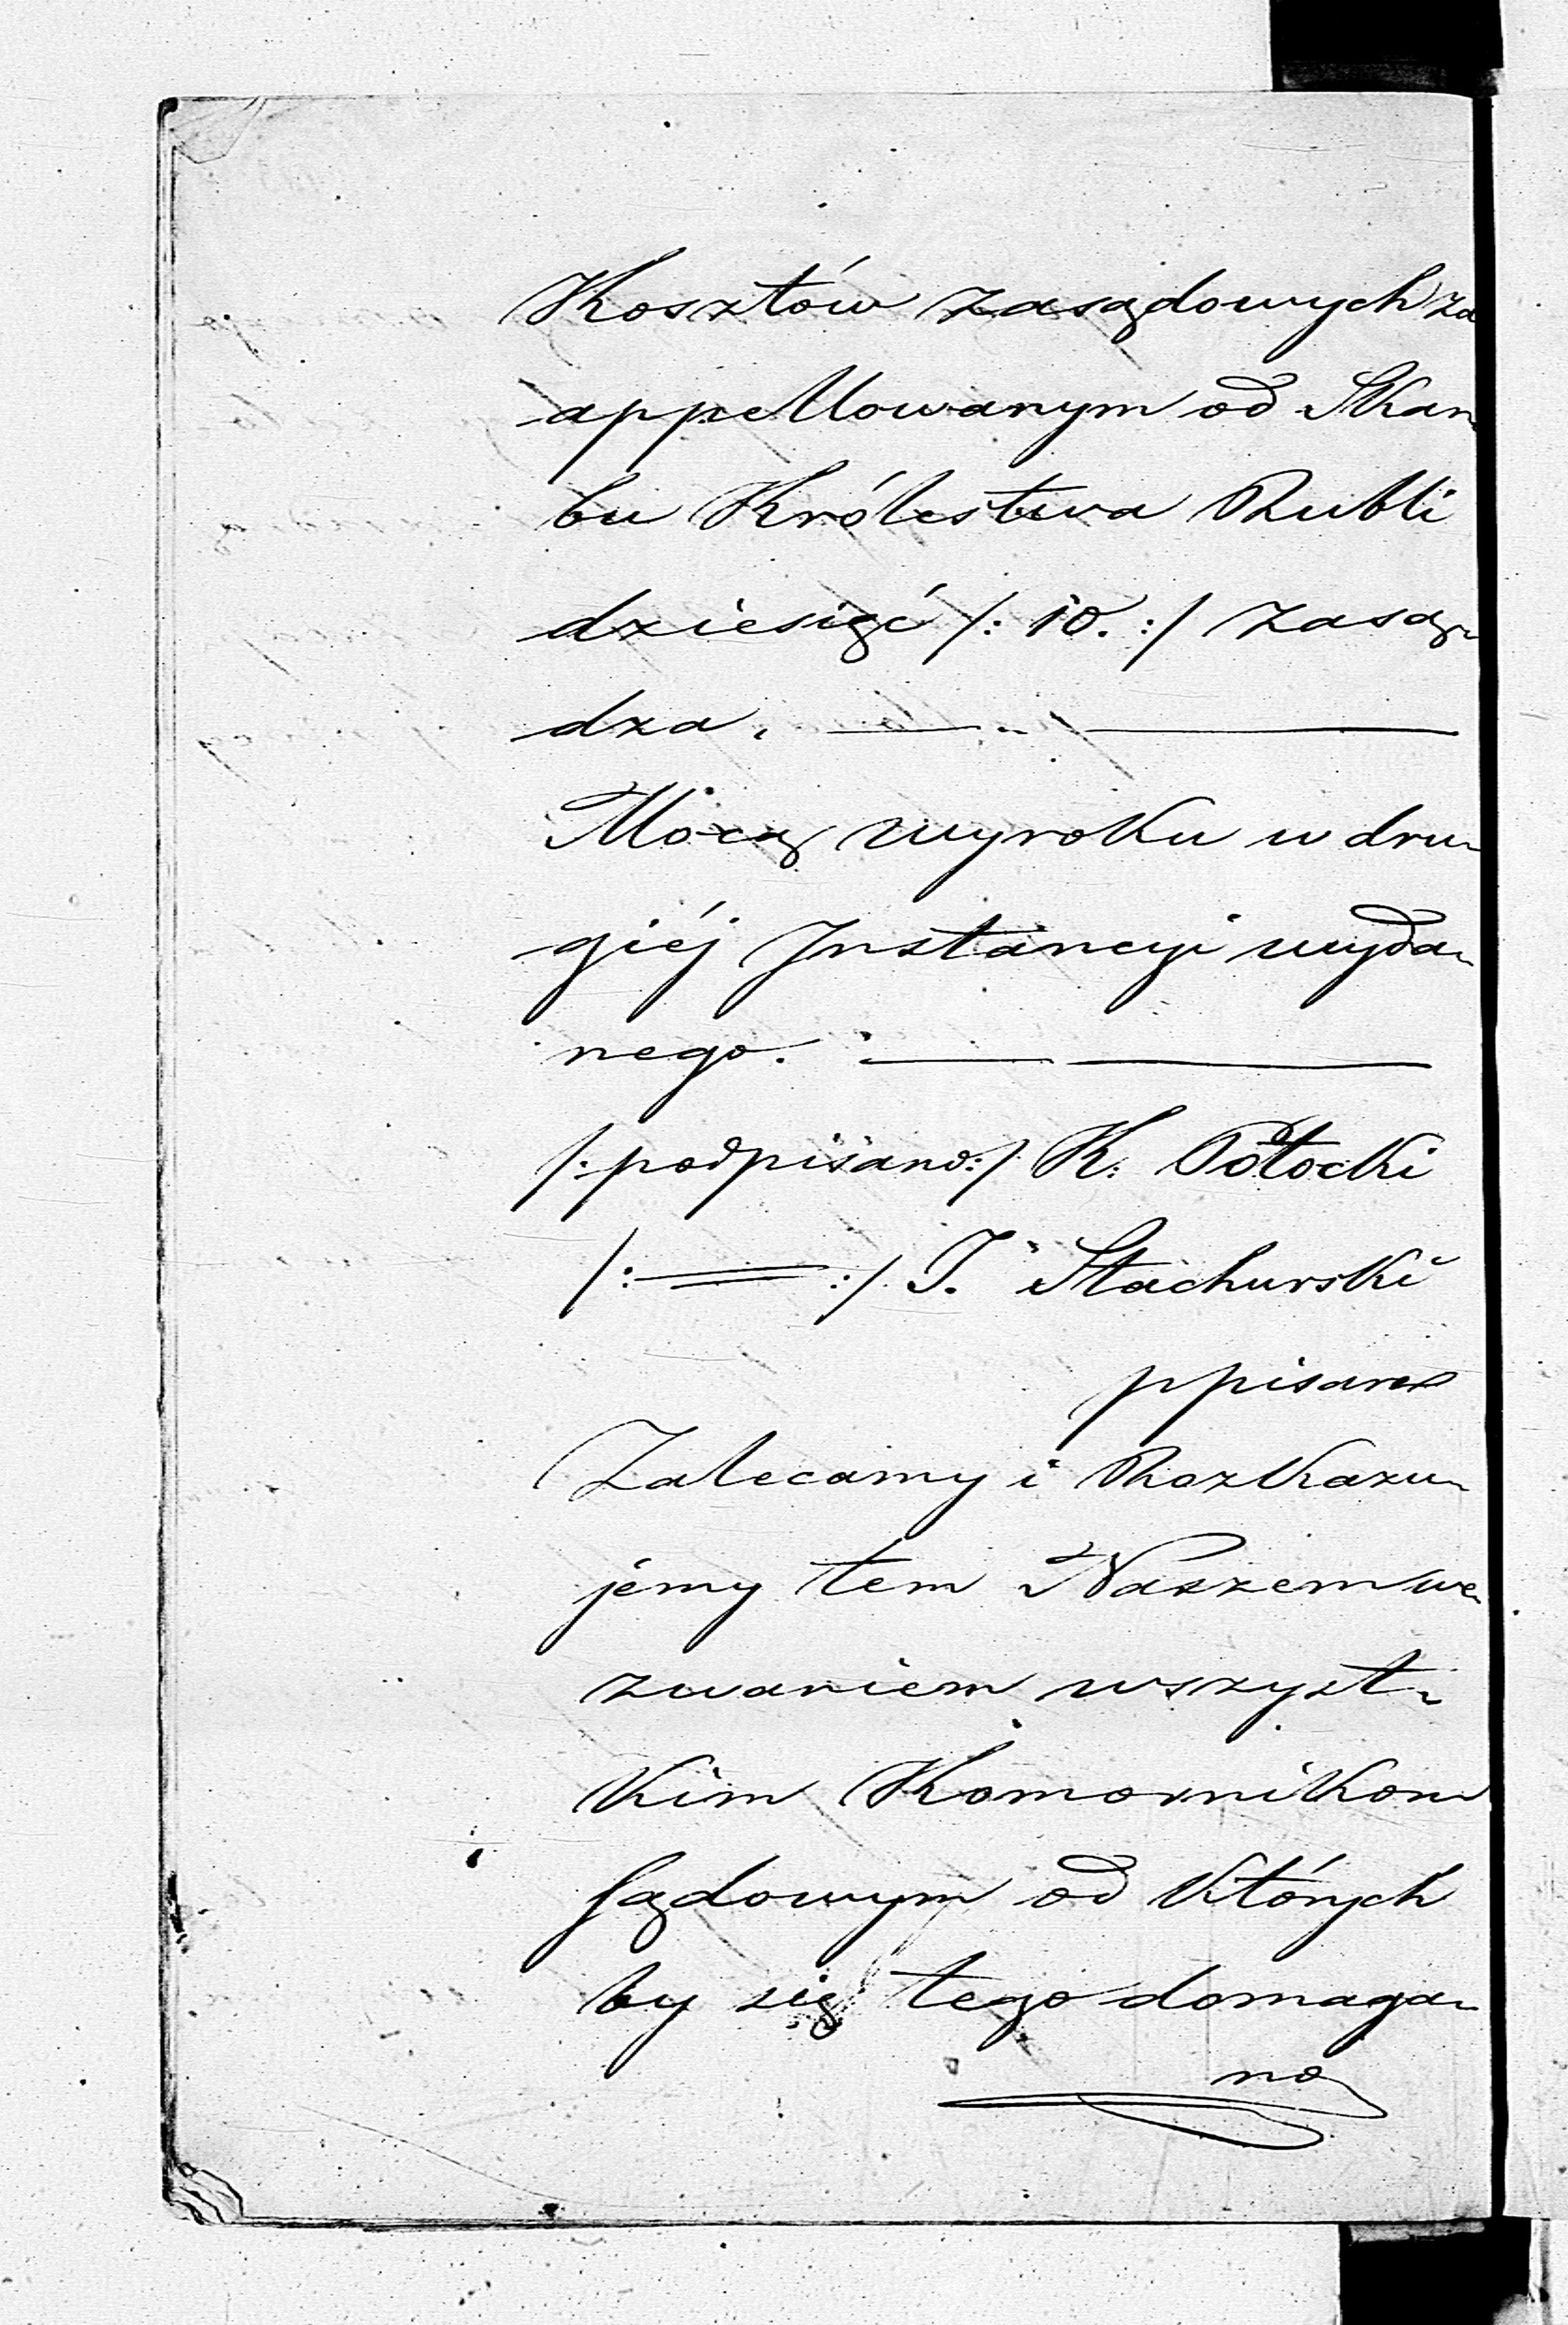 Kosztów zasądowych za
appellowanym od Skar-
bu Królestwa Rubli
dziesięć /: 10. :/ zasą-
dza. ——
Mocą wyroku w dru-
giéj Instancyi wyda-
nego. ——
/: podpisano :/ K. Potocki
/: == :/ J. Stachurski
ppisarz
Zalecamy i Rozkazu-
jemy tem Naszem we-
zwaniem wszyst-
kim Komornikom
Sądowym od których
by się tego domaga-
no